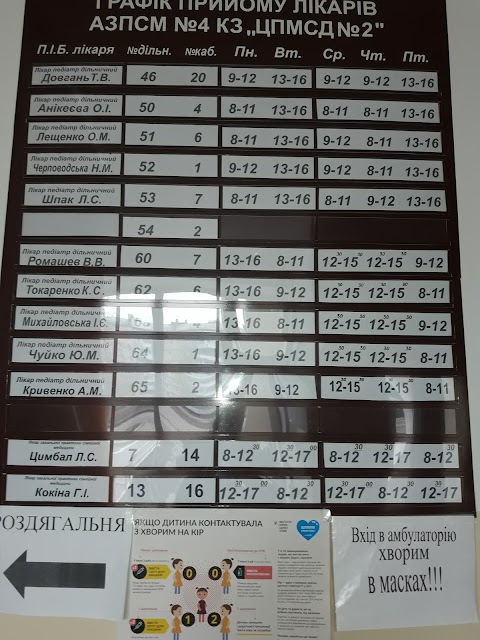 ГРАФІК ПРИЙОМУ ЛІКАРІВ
АЗПСМ №4 КЗ „ЦПМСД №2"
П.І.Б. лікаря №дільн. №каб. Пн. Вт. Ср. Чт. Пт.
Лікар педіатр дільничний
Довгань Т.В. 46 20 9-12 13-16 9-12 9-12 13-16
Лікар педіатр дільничний
Анікеєва О.І. 50 4 8-11 13-16 8-11 8-11 13-16
Лікар педіатр дільничний
Лещенко О.М. 51 6 8-11 13-16 9-12 8-11 13-16
Лікар педіатр дільничний
Черповодська Н.М. 52 1 9-12 13-16 9-12 9-12 13-16
Лікар педіатр дільничний
Шпак Л.С. 53 7 8-11 13-16 8-11 9-12 13-16
54 2
Лікар педіатр дільничний
Ромашев В.В. 60 7 13-16 8-11 12-15³⁰ 12-15³⁰ 9-12
Лікар педіатр дільничний
Токаренко К.С. 62 6 13-16 9-12 12-15³⁰ 12-15³⁰ 8-11
Лікар педіатр дільничний
Михайловська І.Є. 13-16 8-11 12-15³⁰ 12-15³⁰ 9-12
Лікар педіатр дільничний
Чуйко Ю.М. 64 1 13-16 9-12 12-15³⁰ 12-15³⁰ 8-11
Лікар педіатр дільничний
Кривенко А.М. 65 2 13-16 9-12 12-15³⁰ 12-15³⁰ 8-11
Лікар загальної практики сімейної
медицини
Цимбал Л.С. 7 14 8-12³⁰ 12-17³⁰ 8-12³⁰ 12-17³⁰ 8-12³⁰
Лікар загальної практики сімейної
медицини
Кокіна Г.І. 13 16 12-17⁰⁰ 8-12³⁰ 12-17⁰⁰ 8-12³⁰ 12-17⁰⁰
РОЗДЯГАЛЬНЯ
ЯКЩО ДИТИНА КОНТАКТУВАЛА
З ХВОРИМ НА КІР
0 0
1 2
Вхід в амбулаторію
хворим
в масках!!!